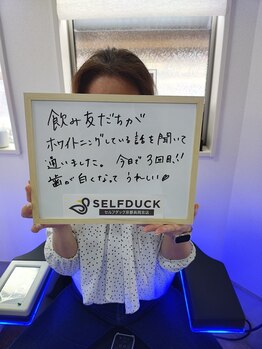 飲み友だちが
ホワイトニングしている話を聞いて
通いました。今日で3回目!!
歯が白くなって うれしい
SELFDUCK
セルフダック京都長岡京店